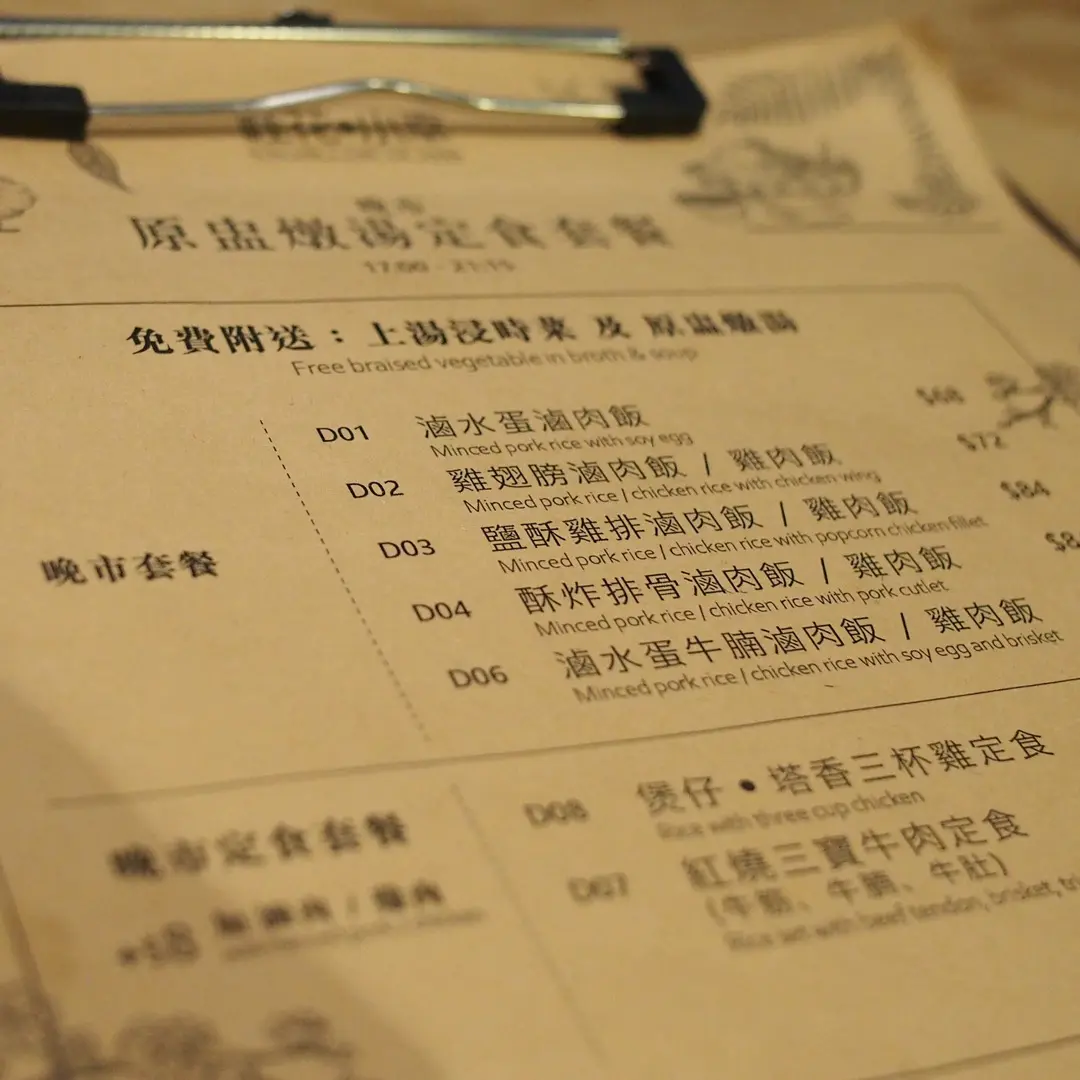 晚市
原盅燉湯定食套餐
17:00 - 21:15
免費附送：上湯浸時菜 及 原盅燉湯
Free braised vegetable in broth & soup
晚市套餐
D01 滷水蛋滷肉飯 $68
Minced pork rice with soy egg
D02 雞翅膀滷肉飯 / 雞肉飯 $72
Minced pork rice / chicken rice with chicken wing
D03 鹽酥雞排滷肉飯 / 雞肉飯 $84
Minced pork rice / chicken rice with popcorn chicken fillet
D04 酥炸排骨滷肉飯 / 雞肉飯 $8
Minced pork rice / chicken rice with pork cutlet
D06 滷水蛋牛腩滷肉飯 / 雞肉飯
Minced pork rice / chicken rice with soy egg and brisket
晚市定食套餐
D08 煲仔・塔香三杯雞定食
Rice with three cup chicken
D07 紅燒三寶牛肉定食
(牛筋、牛腩、牛肚)
Rice set with beef tendon, brisket, tri